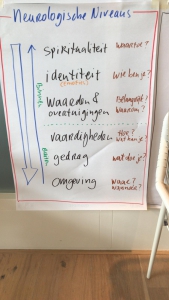 Neurologische Niveaus
spiritualiteit waartoe?
identiteit wie ben je?
(emoties)
waarden & Belangrijk?
overtuigingen waarom?
vaardigheden Hoe?
wat kan je?
gedrag wat doe je?
omgeving waar?
wanneer?